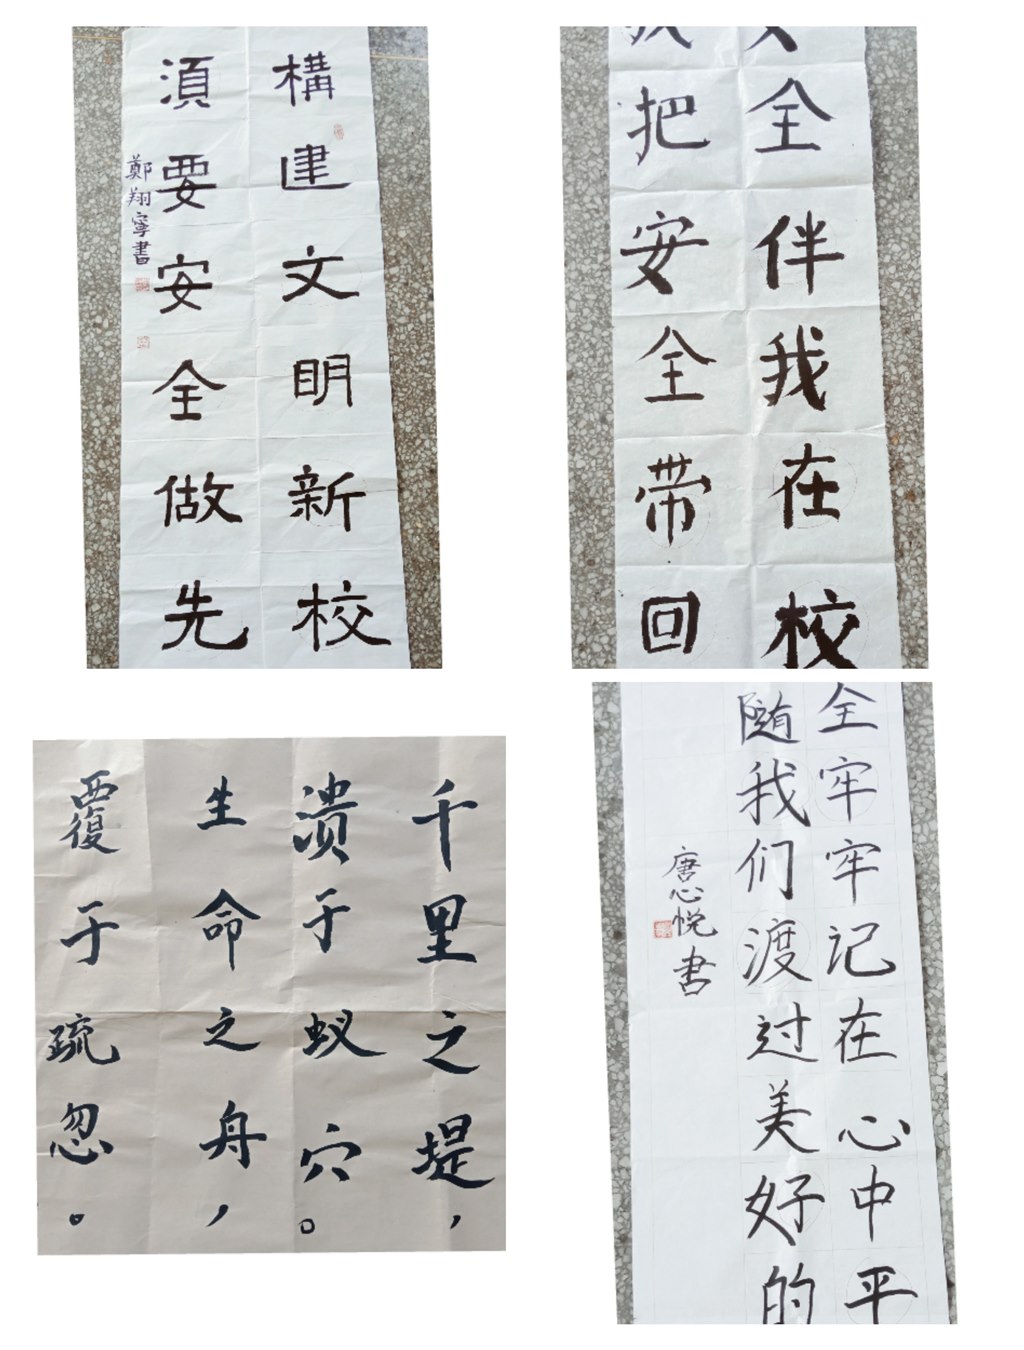 構建文明新校
須要安全做先
鄭翔寧書
全伴我在校
把安全带回
千里之堤，
溃于蚁穴。
生命之舟，
覆于疏忽。
全牢牢记在心中平
随我们渡过美好的
唐心悦书